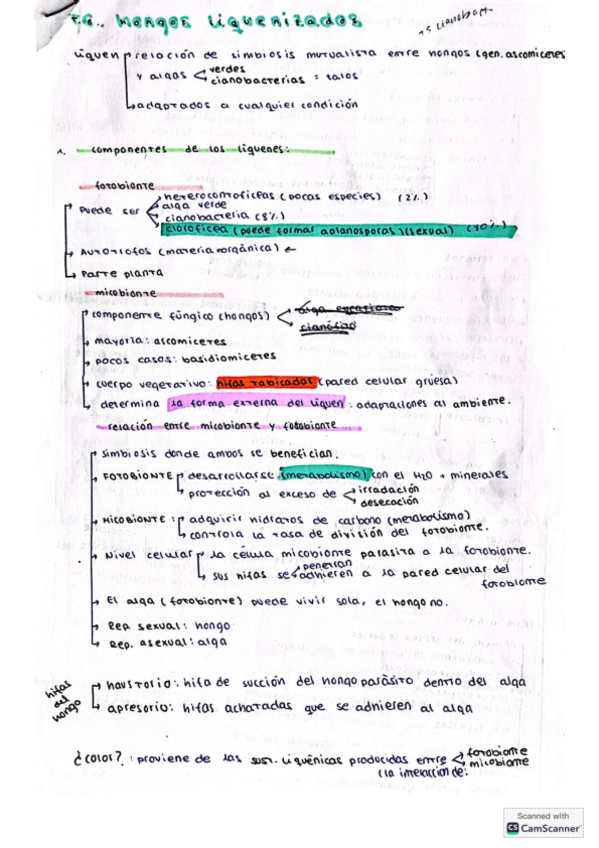 T.6.. Hongos liquenizados
+s cianobact.
Liquen relación de simbiosis mutualista entre hongos (gen. ascomiceres
y algas verdes
cianobacterias : talos
adaptados a cualquier condición
1. componentes de los líquenes:
fotobionte
Puede ser heterocontoficeas (pocas especies) (2%)
alga verde
cianobacteria (8%)
cloroficea (puede formar aplanosporas) (sexual) (90%)
Autótrofos (materia orgánica) ←
Parte planta
micobionte
componente fúngico (hongos)
cianófico
mayoría: ascomiceres
pocos casos: basidiomiceres
cuerpo vegetativo: hifas tabicadas (pared celular gruesa)
determina la forma externa del liquen: adaptaciones al ambiente.
relación entre micobionte y fotobionte
Simbiosis donde ambos se benefician.
FOTOBIONTE desarrollarse (metabolismo) con el H2O + minerales
protección al exceso de irradación
desecación
MICOBIONTE: adquirir hidratos de carbono (metabolismo)
controla la tasa de división del fotobionte.
Nivel celular la célula micobionte parasita a la fotobionte.
penetran
sus hifas se adhieren a la pared celular del
fotobionte
El alga (fotobionte) puede vivir sola, el hongo no.
Rep. sexual: hongo
Rep. asexual: alga
hifas
del
hongo
haustorio: hifa de succión del hongo parásito dentro del alga
apresorio: hifas achatadas que se adhieren al alga
¿color?: proviene de las sust. liquénicas producidas entre fotobionte
micobionte
(la interacción de:
Scanned with
CS CamScanner